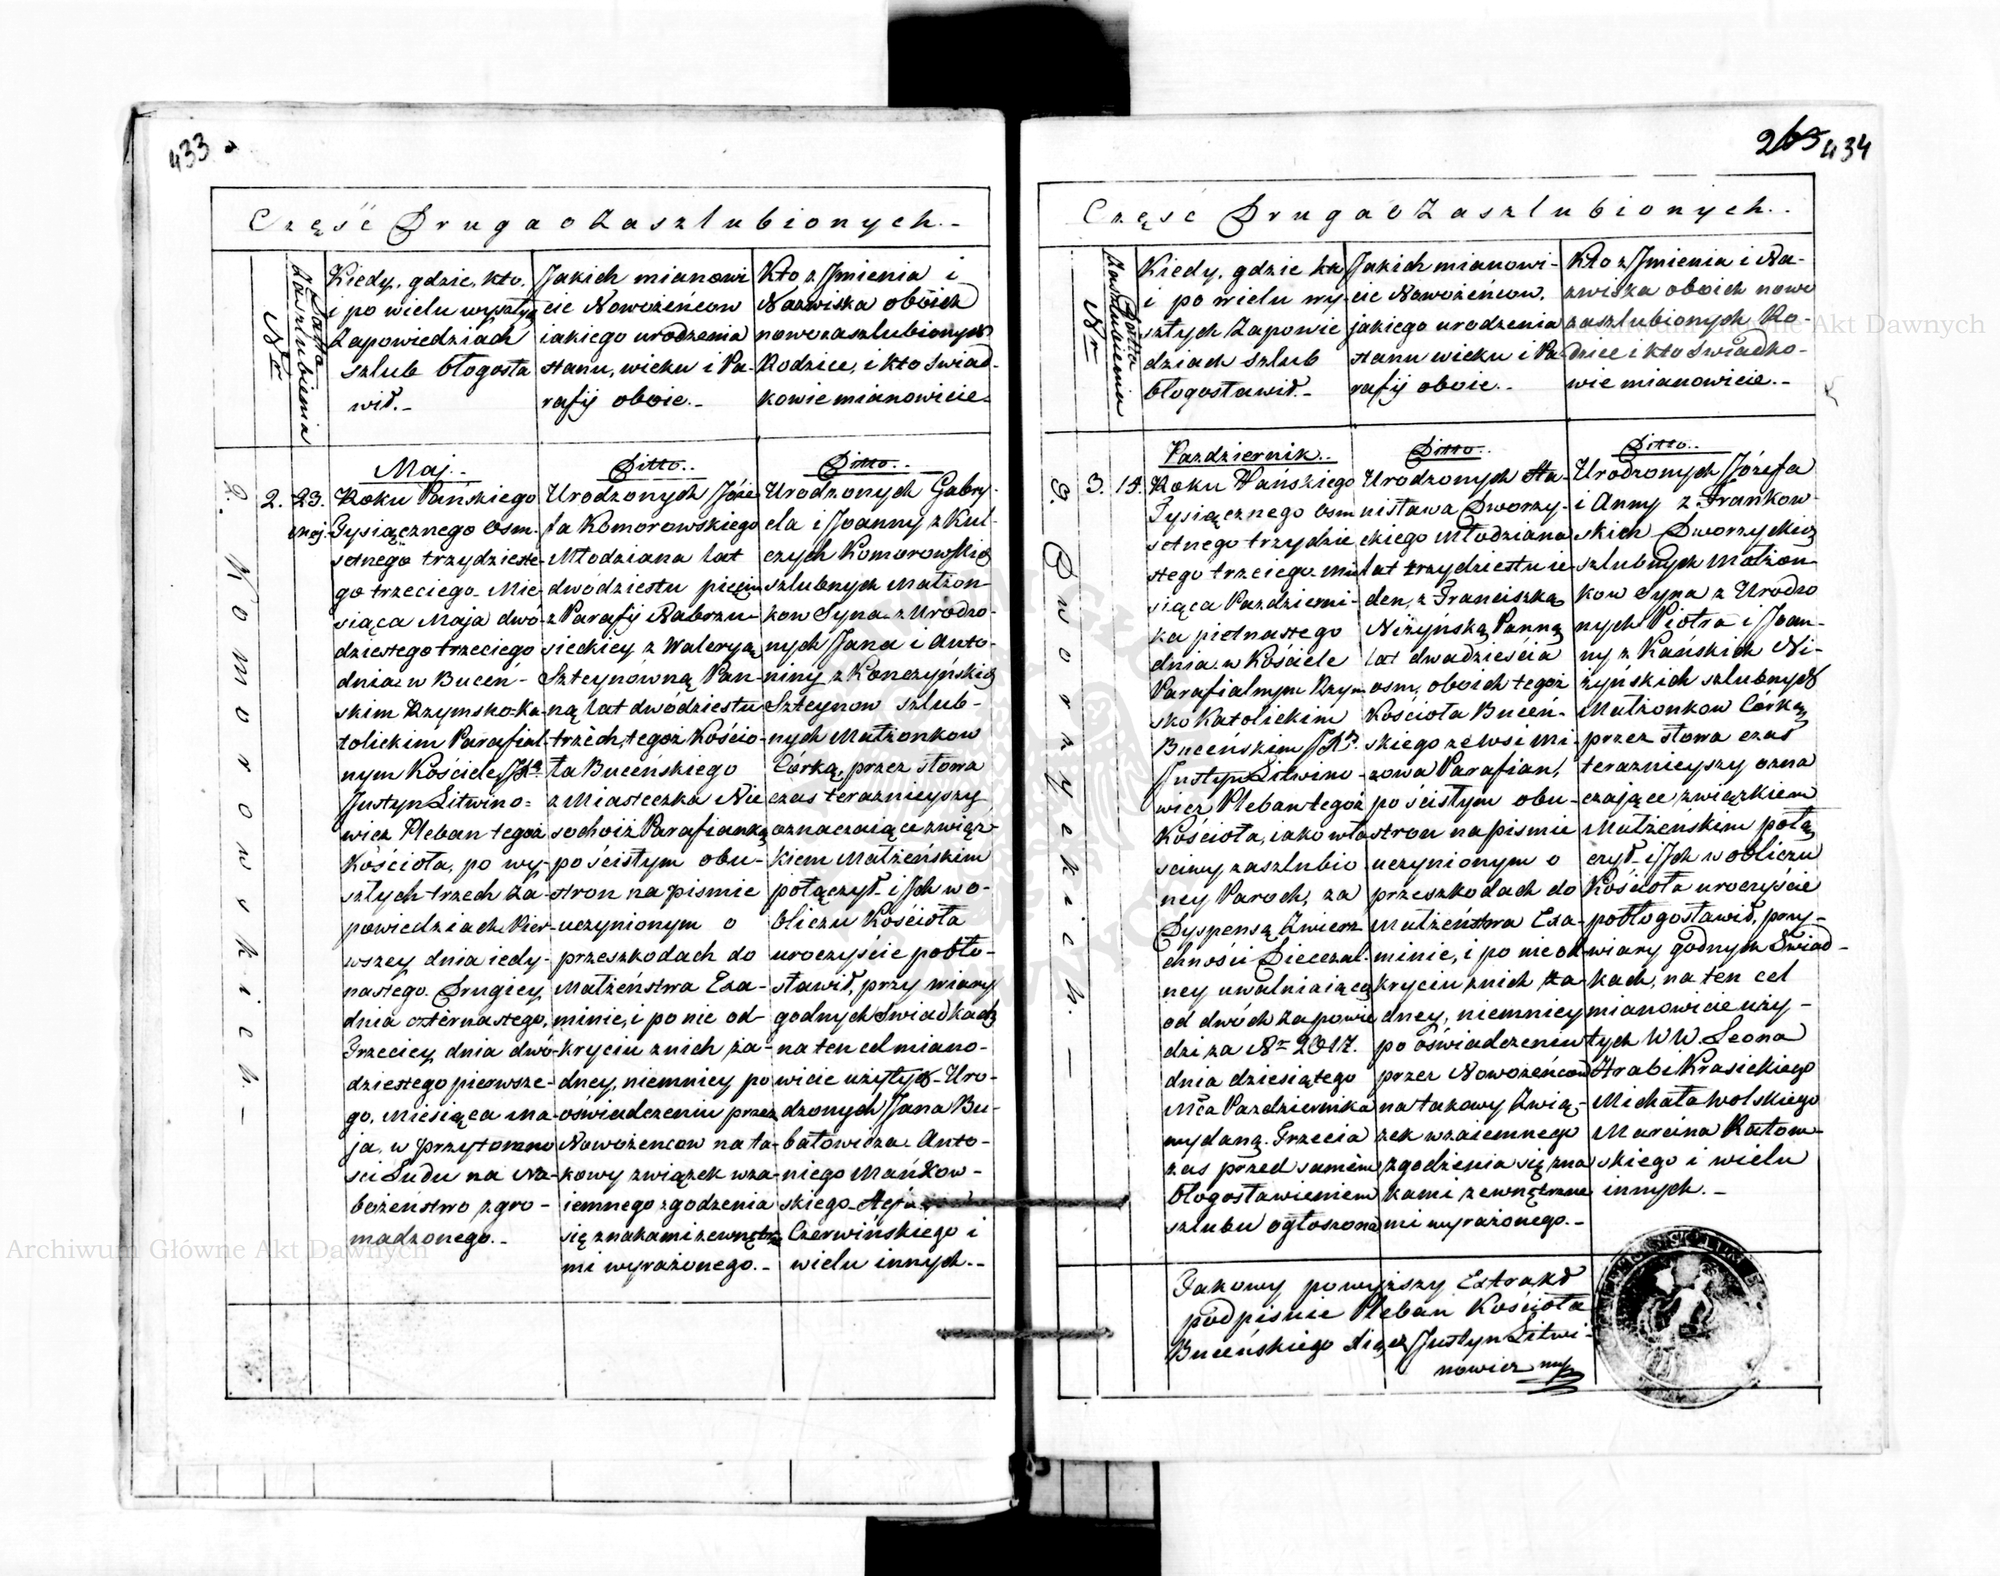 433
Część Druga o Zaszlubionych.-
Nr
Datta Zaszlubienia
Kiedy, gdzie, kto,
i po wielu wyszłych
Zapowiedziach
szlub błogosła
wił.-
Jakich mianowi
cie Nowożeńcow
iakiego urodzenia
stanu, wieku i Pa-
rafij oboie.-
Kto z Jmienia i
Nazwiska oboich
nowozaszlubionych
Rodzice, i kto swiad-
kowie mianowicie.
G. Komorowskich. —
2.
23.
Maj.
Maj.-
Roku Pańskiego
Tysiącznego Osm-
setnego trzydzieste-
go trzeciego. Mie-
siąca Maja dwó-
dziestego trzeciego
dnia w Buceń-
skim Rzymsko-Ka-
tolickim Parafial-
nym Kościele JX.
Justyn Litwino-
wicz Pleban tegoż
Kościoła, po wy-
szłych trzech Za-
powiedziach Pier-
wszey dnia iedy-
nastego. Drugiey
dnia czternastego,
Trzeciey dnia dwó-
dziestego pierwsze-
go, Miesiąca Ma-
ja, w przytomno
sci Ludu na Na-
bożeństwo zgro-
madzonego.-
Ditto.-
Urodzonych Józe
fa Komorowskiego
Młodziana lat
dwódziestu pięciu
z Parafij Rabrzu-
sieckiey z Waleryą
Szteynówną Pan-
ną lat dwódziestu
trzech, tegoż Kościo-
ła Buceńskiego
z Miasteczka Nie
sochoiż Parafianką
po ścisłym obu-
stron na pismie
uczynionym o
przeszkodach do
Małżeństwa Exa-
minie, i po nie od-
kryciu znich ża-
dney, niemniey po
oświadczeniu przez
Nowożencow na ta-
kowy związek wza-
iemnego zgodzenia
się znakami zewnętrzne
mi wyrażonego.-
Ditto.-
Urodzonych Gabry-
ela i Joanny z Kul-
czych Komorowskich
szlubnych Małżon-
kow Syna z Urodzo-
nych Jana i Anto-
niny z Konczyńskich
Szteynow szlub-
nych Małżonkow
Córką, przez słowa
czas teraznieyszy
oznaczaiące związ-
kiem Małżeńskim
połączył i Jch w o-
bliczu Kościoła
uroczyście pobło-
sławił, przy wiary
godnych Swiadkach
na ten cel miano-
wicie użytych Uro-
dzonych Jana Bu-
batowicza Anto-
niego Mańkow-
skiego
Czerwińskiego i
wielu innych.-
263 434
Część Druga o Zaszlubionych.-
Nr
Datta Zaszlubienia
Kiedy, gdzie kto
i po wielu wy
szłych Zapowie
dziach szlub
błogosławił.-
Jakich mianowi-
cie Nowożeńcow,
jakiego urodzenia
stanu wieku i Pa-
rafij oboie.-
Kto z Jmienia i Na-
zwiska oboich nowo
zaszlubionych Ro-
dzice i kto Swiadko-
wie mianowicie.-
G. Dworzyckich. —
3.
15.
Pazdziernik.-
Roku Pańskiego
Tysiącznego Osm
setnego trzydzie
stego trzeciego Mie
siąca Pazdzierni-
ka pietnastego
dnia w Kościele
Parafialnym Rzym
sko Katolickim
Buceńskim JX.
Justyn Litwino-
wicz Pleban tegoż
Kościoła, iako wła
sciwy zaszlubio
ney Paroch, za
Dyspensą Zwierz
chności Diecezal-
ney uwalniaiącą
od dwóch Zapowie
dzi za Nr 2017.
dnia dziesiątego
Mca Pazdziernika
wydaną. Trzecia
zaś przed samém
błogosławieniem
szlubu ogłoszona
Ditto.-
Urodzonych Sta-
nisława Dworzy-
ckiego Młodziana
lat trzydziestu ie-
den, z Franciszką
Niżyńską Panną
lat dwadzieścia
osm, oboich tegoż
Kościoła Buceń-
skiego ze Wsi Mi-
zowa Parafian,
po ścisłym obu-
stron na pismie
uczynionym o
przeszkodach do
Małżeństwa Exa-
minie, i po nie od
kryciu znich ża-
dney, niemniey
po oświadczeniu
przez Nowożeńcow
na takowy Zwią-
zek wzaiemnego
zgodzenia się zna
kami zewnętrzne
mi wyrażonego.-
Ditto.-
Urodzonych Józefa
i Anny z Frankow-
skich Dworzyckich
szlubnych Małżon-
kow Syna z Urodzo
nych Piotra i Joan-
ny z Kańskich Ni-
żyńskich szlubnych
Małżonkow Córką,
przez słowa czas
teraznieyszy ozna
czające związkiem
Małżeńskim połą
czył i Jch w obliczu
Kościoła uroczyście
pobłogosławił, przy
wiary godnych Swiad-
kach, na ten cel
mianowicie uży-
tych WW Leona
Hrabi Krasickiego
Michała Wolskiego
Marcina Ratom-
skiego i wielu
innych.-
Takowy powyższy Extrakt
podpisuie Pleban Kościoła
Buceńskiego Xiądz Justyn Litwi-
nowicz mp
Archiwum Główne Akt Dawnych
Archiwum Główne Akt Dawnych